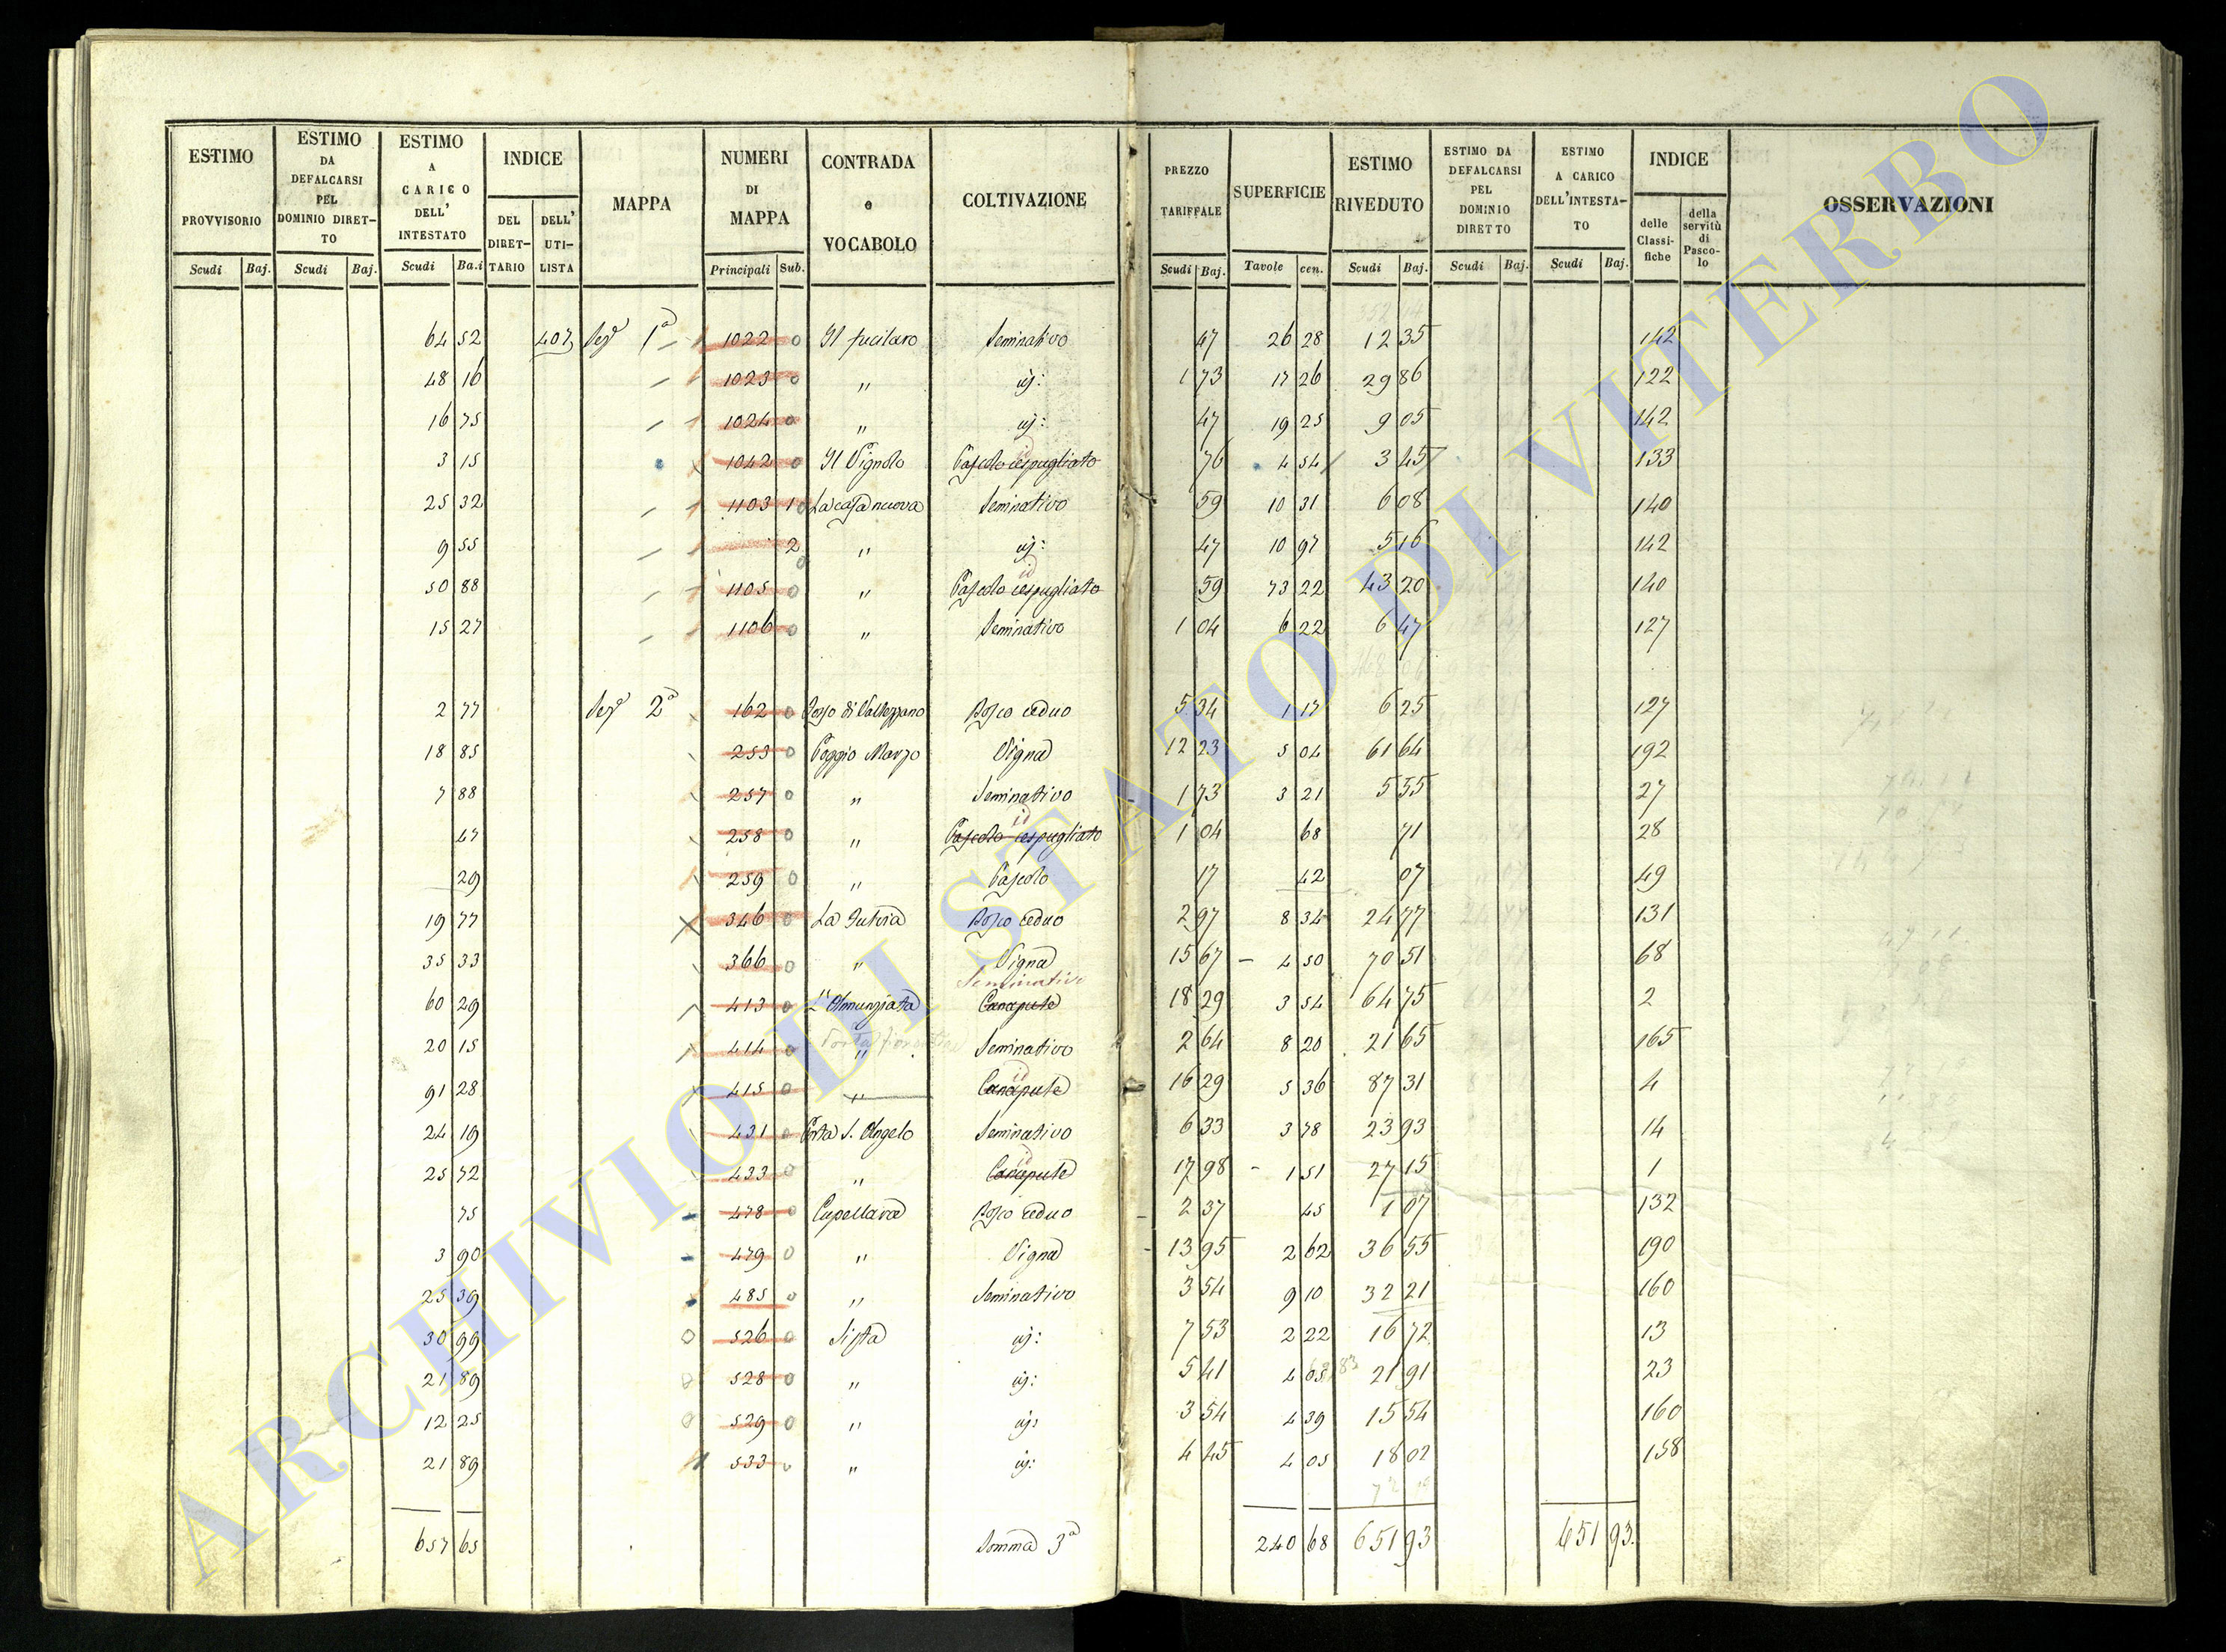 ESTIMO PROVVISORIO Scudi Baj.
ESTIMO DA DEFALCARSI PEL DOMINIO DIRET- TO Scudi Baj.
ESTIMO A CARICO DELL' INTESTATO Scudi Ba.i
INDICE DEL DIRET- TARIO DELL' UTI- LISTA
MAPPA
NUMERI DI MAPPA Principali Sub.
CONTRADA e VOCABOLO
COLTIVAZIONE
PREZZO TARIFFALE Scudi Baj.
SUPERFICIE Tavole cen.
ESTIMO RIVEDUTO Scudi Baj.
ESTIMO DA DEFALCARSI PEL DOMINIO DIRETTO Scudi Baj.
ESTIMO A CARICO DELL'INTESTA- TO Scudi Baj.
INDICE delle Classi- fiche della servitù di Pasco- lo
OSSERVAZIONI
64 52 407 1ª 1022 0 Il Seminativo 47 26 28 12 35 142
48 16 1023 0 " id: 1 73 17 26 29 86 122
16 75 1024 0 " id: 47 19 25 9 05 142
3 15 1042 0 Il Vignolo Pascolo cespugliato id 76 4 54 3 45 133
25 32 1103 1 0 La casa nuova Seminativo 59 10 31 6 08 140
9 55 2 0 " id: 47 10 97 5 16 142
50 88 1105 0 " Pascolo cespugliato id 59 73 22 43 20 140
15 27 1106 0 " Seminativo 1 04 6 22 6 47 127
2 77 2ª 162 0 Bosco ceduo 5 34 1 17 6 25 127
18 85 253 0 Poggio Marzo Vigna 12 23 5 04 61 64 192
7 88 257 0 " Seminativo 1 73 3 21 5 55 27
47 258 0 " Pascolo cespugliato id 1 04 68 71 28
29 259 0 " Pascolo 17 42 07 49
19 77 346 0 La Bosco ceduo 2 97 8 34 24 77 131
35 33 366 0 " Vigna 15 67 4 50 70 51 68
60 29 413 0 L'Annunziata Canapule Seminativo 18 29 3 54 64 75 2
20 15 414 0 " Seminativo 2 64 8 20 21 65 165
91 28 415 0 " Canapule id 16 29 5 36 87 31 4
24 19 431 0 Porta S. Angelo Seminativo 6 33 3 78 23 93 14
25 72 433 0 " Canapule id 17 98 1 51 27 15 1
75 478 0 Cupellara Bosco ceduo 2 37 45 1 07 132
3 90 479 0 " Vigna 13 95 2 62 36 55 190
25 39 485 0 " Seminativo 3 54 9 10 32 21 160
30 99 526 0 Sista id: 7 53 2 22 16 72 13
21 89 528 0 " id: 5 41 4 05 21 91 23
12 25 529 0 " id: 3 54 4 39 15 54 160
21 89 533 0 " id: 4 45 4 05 18 02 158
657 65 Somma 3ª 240 68 651 93 651 93
ARCHIVIO DI STATO DI VITERBO